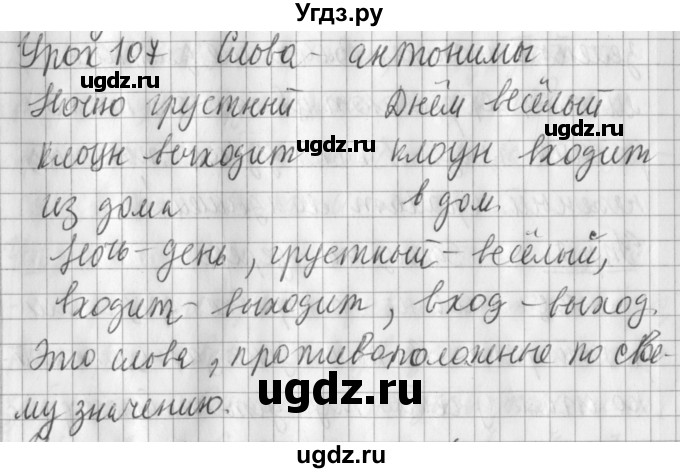 Угдз.ру
Урок 107 Слова - антонимы
Ночью грустный Днём весёлый
клоун выходит клоун входит
из дома в дом.
Ночь - день, грустный - весёлый,
входит - выходит, вход - выход.
Это слова, противоположные по свое-
му значению.
ugdz.ru
ugdz.ru
ugdz.ru
ugdz.ru
ugdz.ru
ugdz.ru